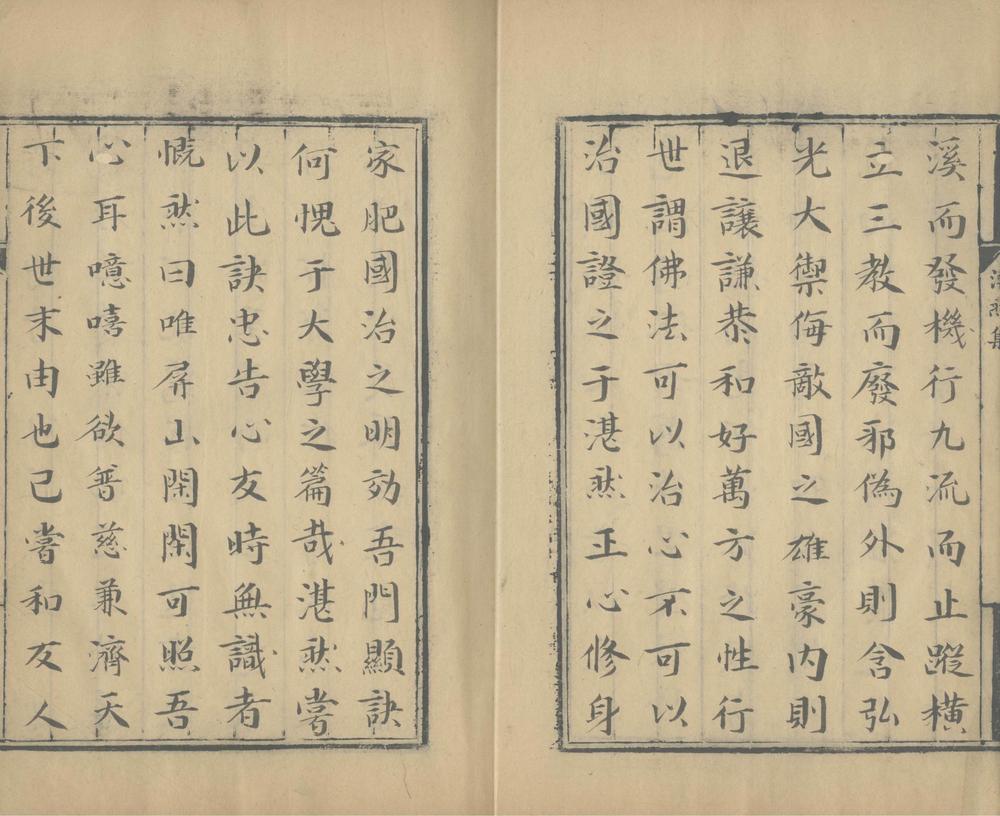 溪而發機行九流而止蹤橫
立三教而廢邪偽外則含弘
光大禦侮敵國之雄豪内則
退讓謙恭和好萬方之性行
世謂佛法可以治心不可以
治國證之于湛然正心修身
家肥國治之明効吾門顯訣
何愧于大學之篇哉湛然嘗
以此訣忠告心友時無識者
慨然曰唯屏山閑閑可照吾
心耳噫嘻雖欲普慈兼濟天
下後世末由也已嘗和友人